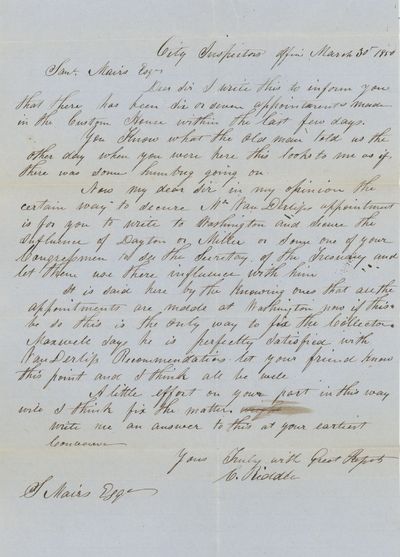 City Inspectors office March 30th 1850
Saml. Mairs Esqr
Dear sir I write this to inform you
that there has been six or seven appointments made
in the Custom House within the last few days.
You Know what the old man told us the
other day when you were here this looks to me as if
there was some humbug going on
Now my dear sir in my opinion the
certain way to secure Mr Van Derlips appointment
is for you to write to Washington and secure the
Influence of Dayton or Miller or some one of your
Congressmen to see the Secretary of the Treasury and
let them use there influence with him
It is said here by the Knowing ones that all the
appointments are made at Washington now if this
be so this is the only way to fix the Collector
Maxwell says he is perfectly satisfied with
VanDerlip Recommendations let your friend know
this point and I think all be well
A little effort on your part in this way
will I think fix the matter
write me an answer to this at your earliest
Yours Truly with Great Respect
C. Riddle
S Mairs Esqr